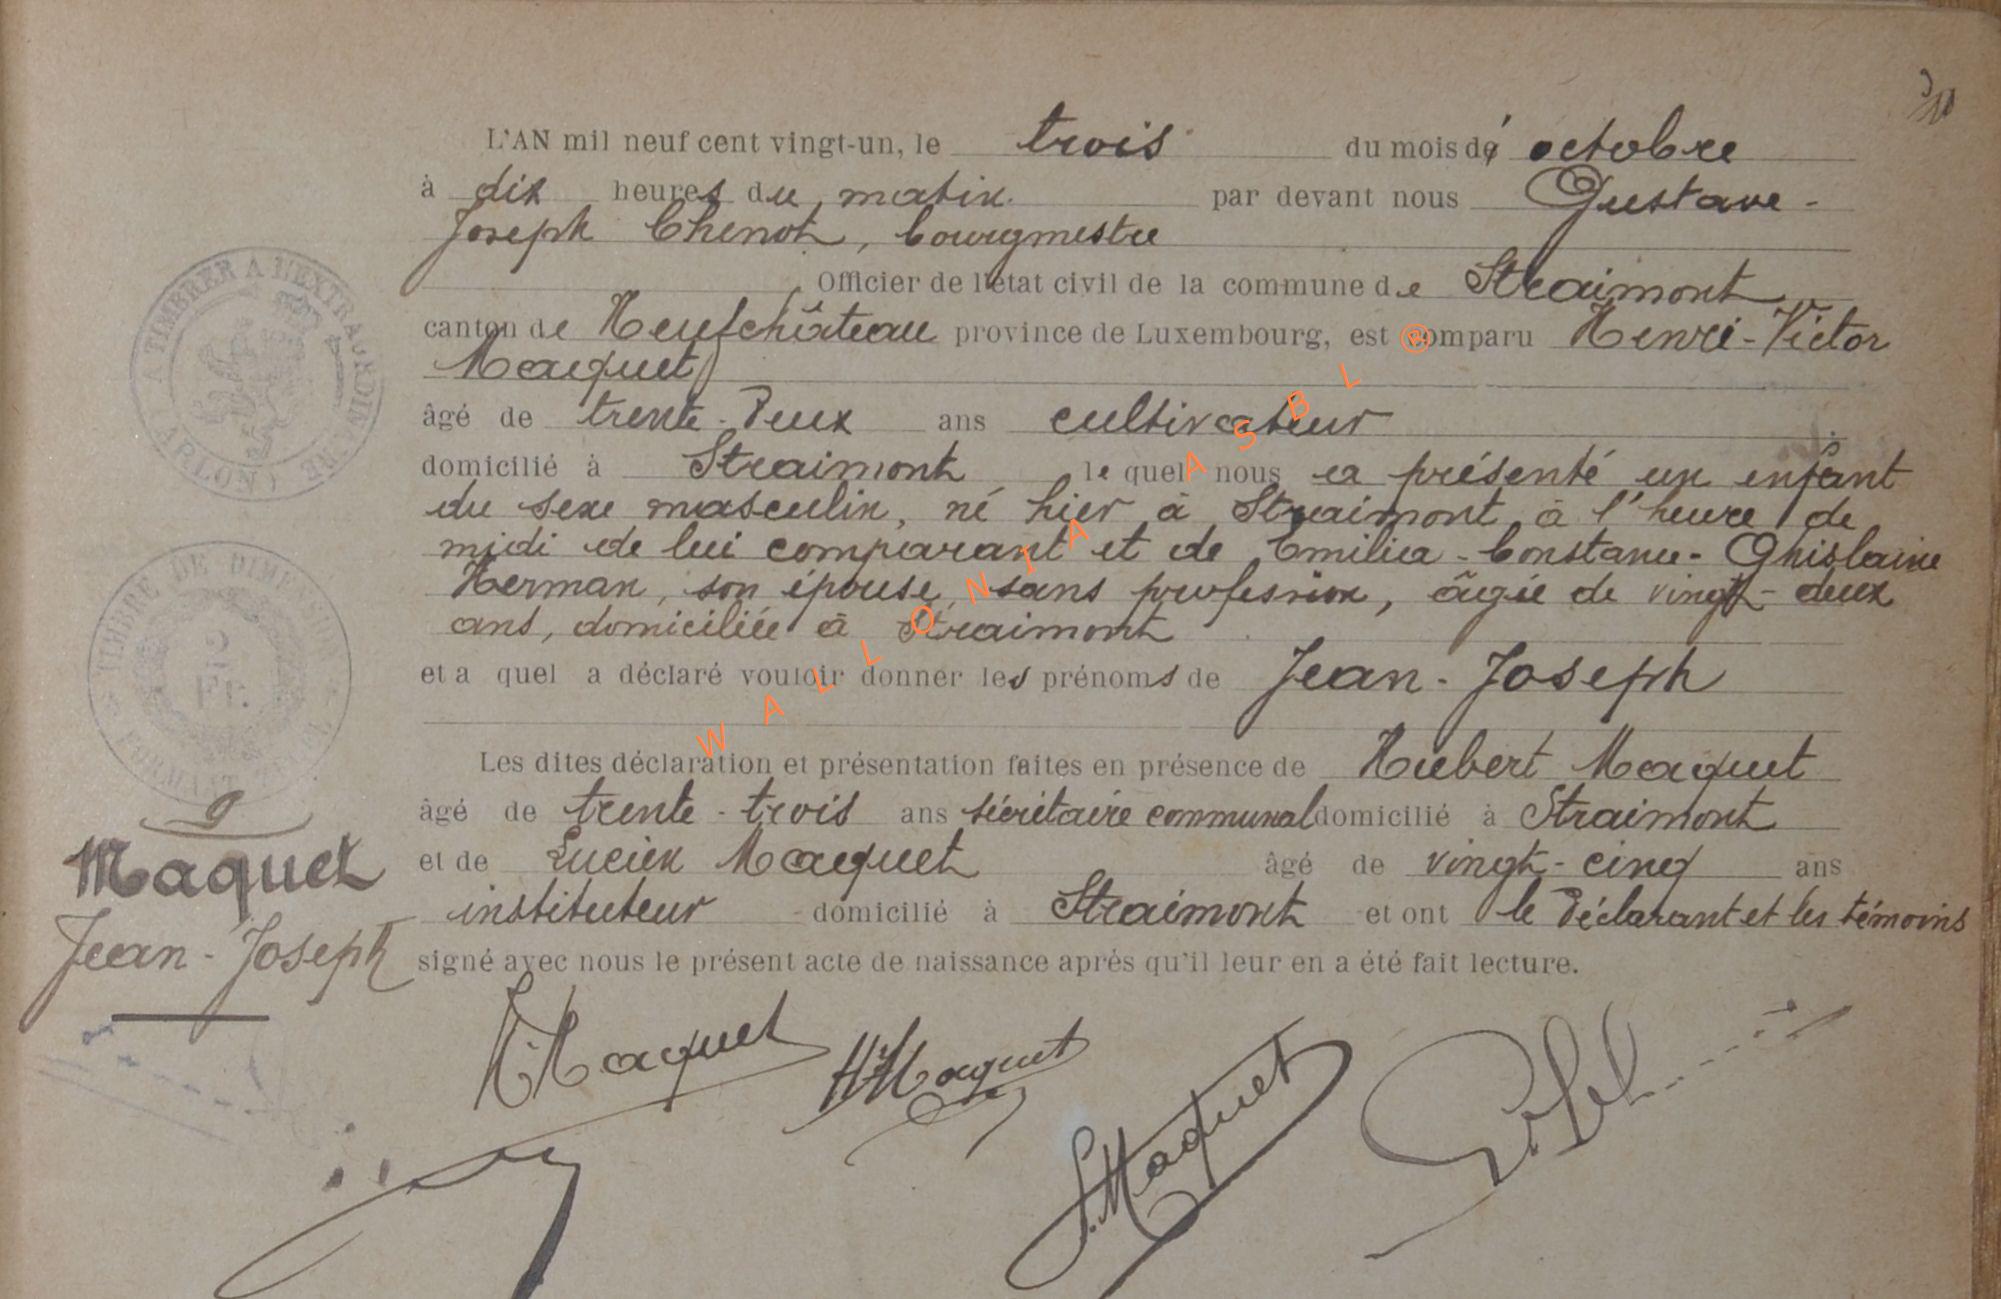 L'AN mil neuf cent vingt-un, le trois du mois d' octobre
à dix heures du matin. par devant nous Gustave-
Joseph Chenot, bourgmestre
Officier de l'état civil de la commune de Straimont
canton de Neufchâteau province de Luxembourg, est comparu Henri-Victor
Maquet
âgé de trente-deux ans cultivateur
domicilié à Straimont lequel nous a présenté un enfant
du sexe masculin, né hier à Straimont à l'heure de
midi de lui comparant et de Emilia-Constance-Ghislaine
Herman, son épouse, sans profession, âgée de vingt-deux
ans, domiciliée à Straimont
et a quel a déclaré vouloir donner les prénoms de Jean-Joseph
Les dites déclaration et présentation faites en présence de Hubert Maquet
âgé de trente-trois ans sécrétaire communal domicilié à Straimont
et de Lucien Maquet âgé de vingt-cinq ans
instituteur domicilié à Straimont et ont le déclarant et les témoins
signé avec nous le présent acte de naissance après qu'il leur en a été fait lecture.
A TIMBRER A L'EXTRAORDINAIRE
(ARLON)
TIMBRE DE DIMENSION
2
Fr.
9
Maquet
Jean-Joseph
Maquet
H. Maquet
L. Maquet
WALLONIA ASBL ®